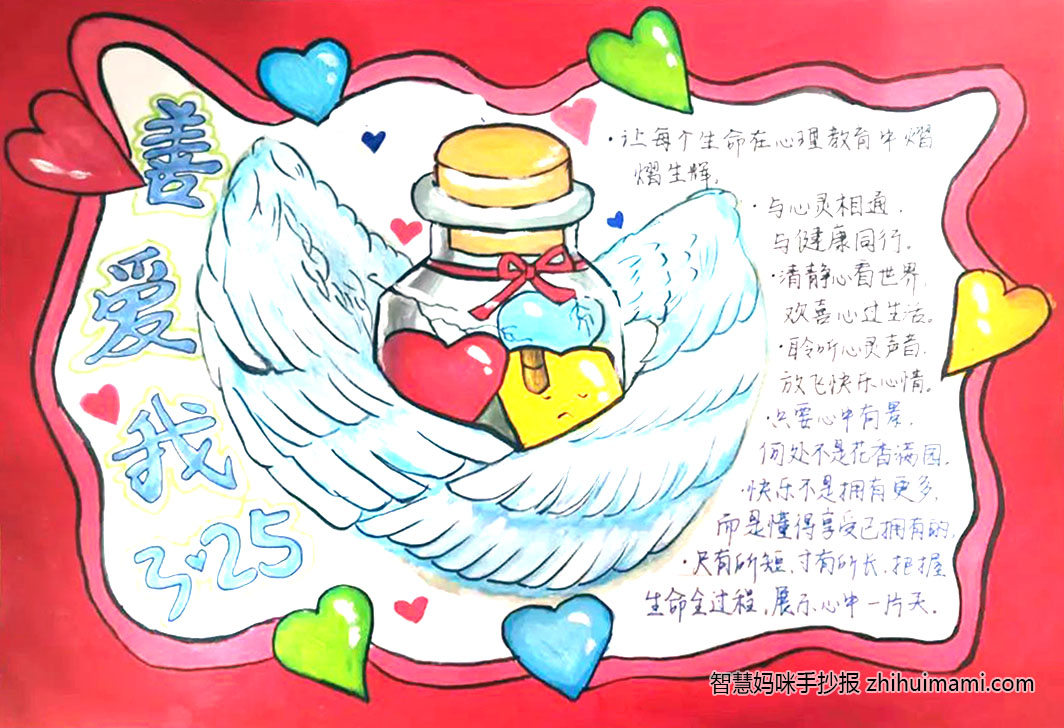 善
爱
我
3·25
·让每个生命在心理教育中熠
熠生辉。
·与心灵相通，
与健康同行。
·清静心看世界，
欢喜心过生活。
·聆听心灵声音，
放飞快乐心情。
·只要心中有景，
何处不是花香满园。
·快乐不是拥有更多，
而是懂得享受已拥有的。
·尺有所短，寸有所长，把握
生命全过程，展示心中一片天。
智慧妈咪手抄报 zhihuimami.com